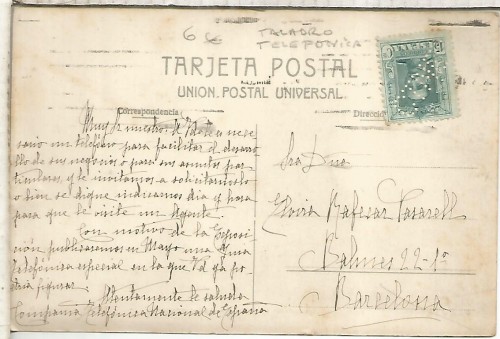 6 €
TALADRO
TELEFONICA
TARJETA POSTAL
UNION POSTAL UNIVERSAL
Correspondencia
Direcció
Muy Sr nuestro: Si Vd cree nece
sario un teléfono para facilitar el desarro
llo de sus negocios o para sus asuntos par
ticulares, y le invitamos a solicitárnoslo
o bien se digne indicarnos día y hora
para que le visite un Agente.
Con motivo de la Exposi
ción publicaremos en Mayo una Guía
telefónica especial en la que Vd ya po
dría figurar.
Atentamente le saluda
Compañía Telefónica Nacional de España
Sra Dña
Elvira
Balmes 22-1º
Barcelona